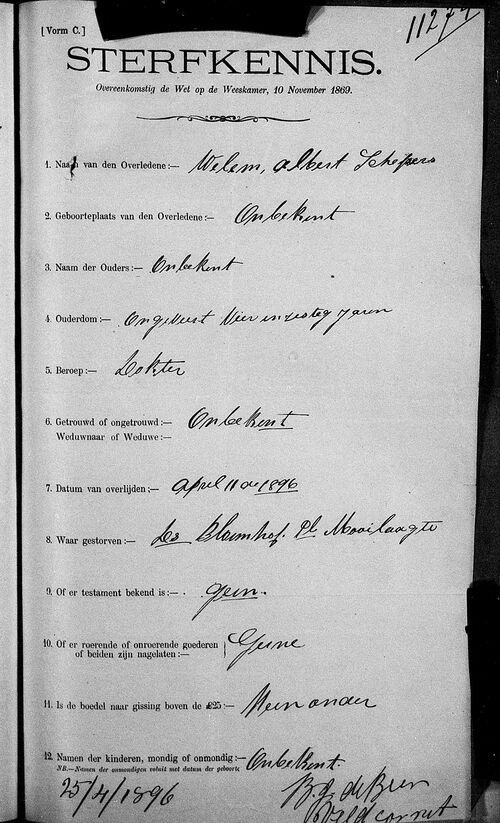 [Vorm C.]
11274
STERFKENNIS.
Overeenkomstig de Wet op de Weeskamer, 10 November 1869.
1. Naam van den Overledene:— Welem, Albert Schepers
2. Geboorteplaats van den Overledene:— Onbekent
3. Naam der Ouders:— Onbekent
4. Ouderdom:— Ongeveer Vier en sesteg jaren
5. Beroep:— Dokter
6. Getrouwd of ongetrouwd:— Onbekent
Weduwnaar of Weduwe:—
7. Datum van overlijden:— April 11 de 1896
8. Waar gestorven:— Ds Bloemhof. Pl Mooilaagte
9. Of er testament bekend is:— Geen.
10. Of er roerende of onroerende goederen
of beiden zijn nagelaten:— Geene
11. Is de boedel naar gissing boven de £25:— Neen onder
12. Namen der kinderen, mondig of onmondig:— Onbekent.
NB.—Namen der onmondigen voluit met datum der geboorte.
25/4/1896
de Veldcornet